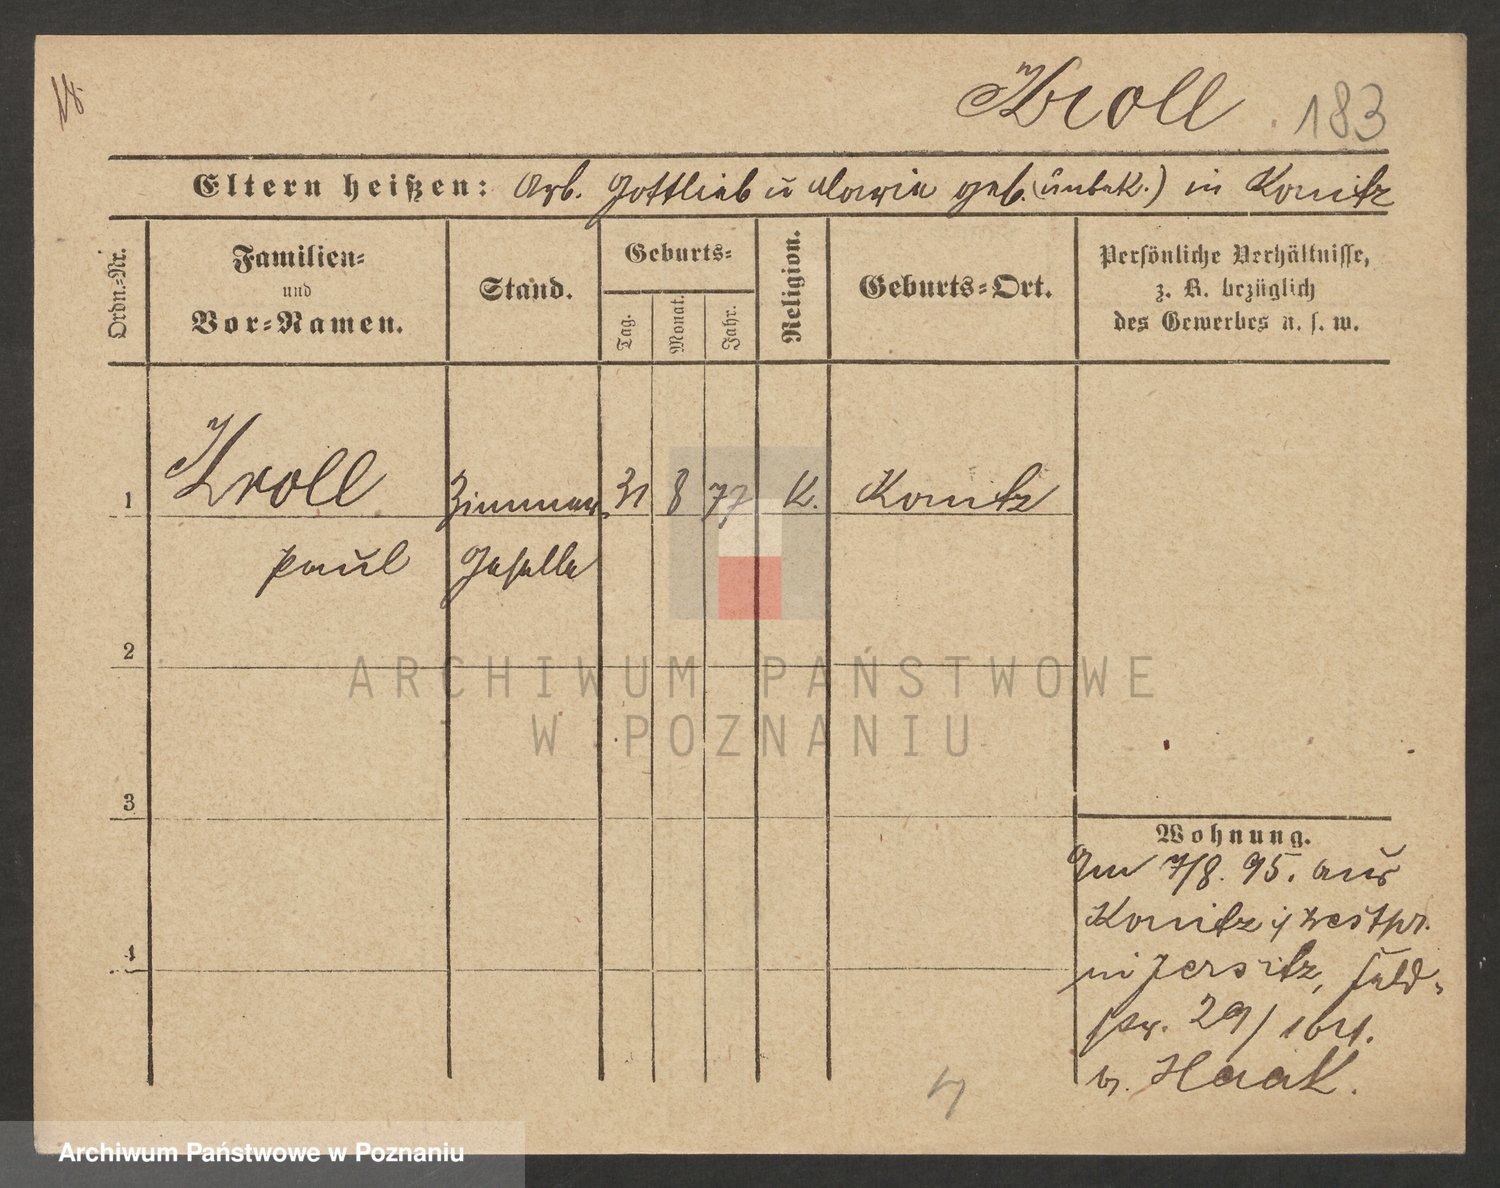 Kroll 183
Eltern heißen: Arb. Gottlieb ü Marie geb. (ünbek.) in Konitz
Ordn.-Nr.
Familien-
und
Vor-Namen.
Stand.
Geburts-
Tag.
Monat.
Jahr.
Religion.
Geburts-Ort.
Persönliche Verhältnisse,
z. B. bezüglich
des Gewerbes u. s. w.
1 Kroll Zimmer- 31 8 77 K. Konitz
Paul Geselle
2
ARCHIWUM PAŃSTWOWE
W POZNANIU
3
Wohnung.
Am 7/8. 95. aus
Konitz i/ Westpr.
in Jersitz, Feld-
str. 29/
b. Haak.
4
Archiwum Państwowe w Poznaniu